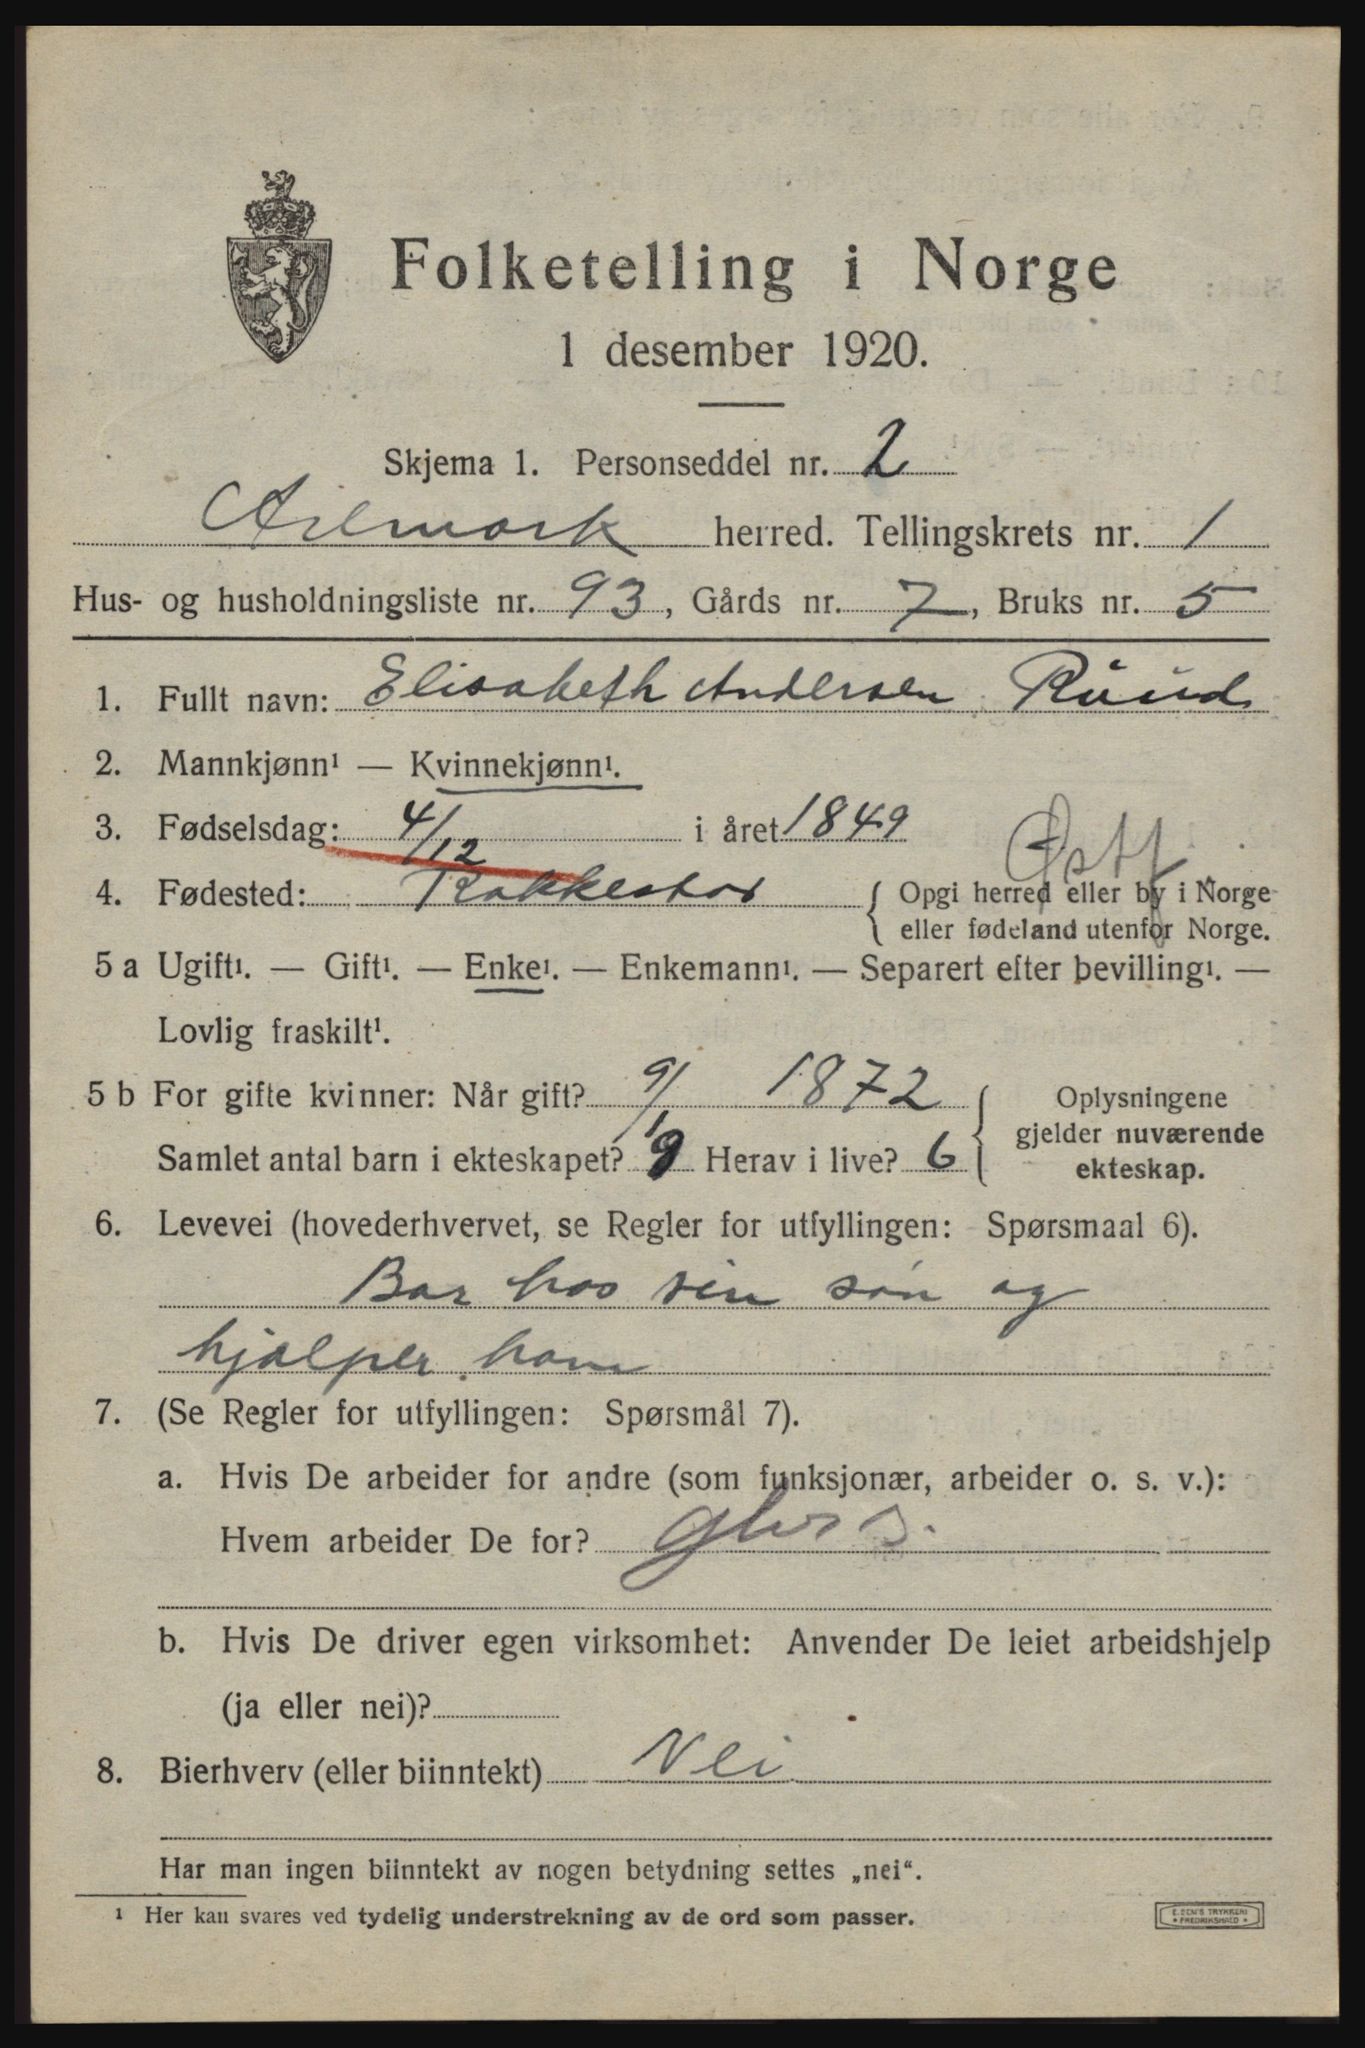 Folketelling i Norge
1 desember 1920.
Skjema 1. Personseddel nr. 2
Aremark herred. Tellingskrets nr. 1
Hus- og husholdningsliste nr. 93, Gårds nr. 7, Bruks nr. 5
1. Fullt navn: Elisabeth Andersen Ruud
2. Mannkjønn¹ — Kvinnekjønn¹.
3. Fødselsdag: 4/12 i året 1849
Østf
4. Fødested: Rakkestad { Opgi herred eller by i Norge
eller fødeland utenfor Norge.
5 a Ugift¹. — Gift¹. — Enke¹. — Enkemann¹. — Separert efter bevilling¹. —
Lovlig fraskilt¹.
5 b For gifte kvinner: Når gift? 9/1 1872
Samlet antal barn i ekteskapet? 9 Herav i live? 6
{ Oplysningene
gjelder nuværende
ekteskap.
6. Levevei (hovederhvervet, se Regler for utfyllingen: Spørsmaal 6).
Bor hos sin søn og
hjælper ham
7. (Se Regler for utfyllingen: Spørsmål 7).
a. Hvis De arbeider for andre (som funksjonær, arbeider o. s. v.):
Hvem arbeider De for?
b. Hvis De driver egen virksomhet: Anvender De leiet arbeidshjelp
(ja eller nei)?
8. Bierhverv (eller biinntekt) Nei
Har man ingen biinntekt av nogen betydning settes „nei“.
¹ Her kan svares ved tydelig understrekning av de ord som passer.